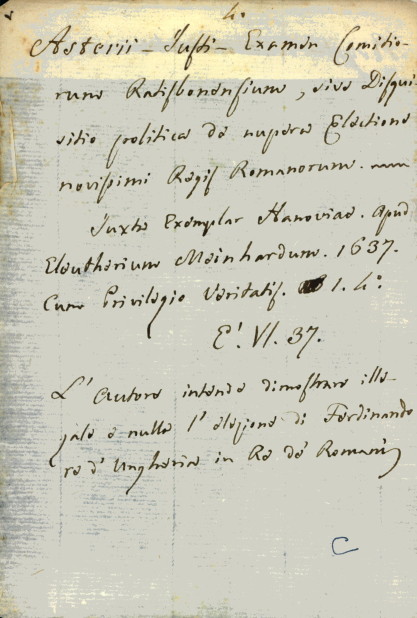 4.
Asterii - Justi - Examen Comitio-
rum Ratisbonensium, sive Disqui-
sitio politica de nupera Electione
novissimi Regis Romanorum.
Juxta Exemplar Hanoviae. Apud
Eleutherium Meinhardum. 1637.
Cum Privilegio Veritatis. 1. 4.º
E'. VI. 37.
L'Autore intende dimostrare ille-
gale e nulla l'elezione di Ferdinando
re d'Ungheria in Re de' Romani
C